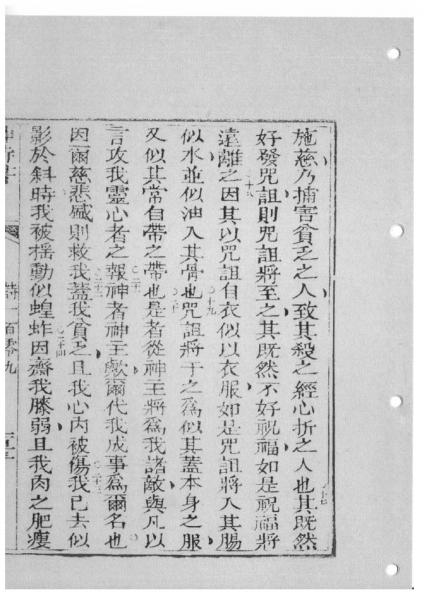 施慈乃捕害貧乏之人致其殺之經心折之人也其既然
好發咒詛則咒詛將至之其既然不好祝福如是祝福將
遠離之因其以咒詛自衣似以衣服如是咒詛將入其腸
似水並似油入其骨也咒詛將于之為似其蓋本身之服
又似其常自帶之帶也是者從神主將為我諸敵與凡以
言攻我靈心者之報神者神主歟爾代我成事為爾名也
因爾慈悲感則救我蓋我貧乏且我心内被傷我已去似
影於斜時我被揺動似蝗蚱因齋我膝弱且我肉之肥瘦
詩一百零九